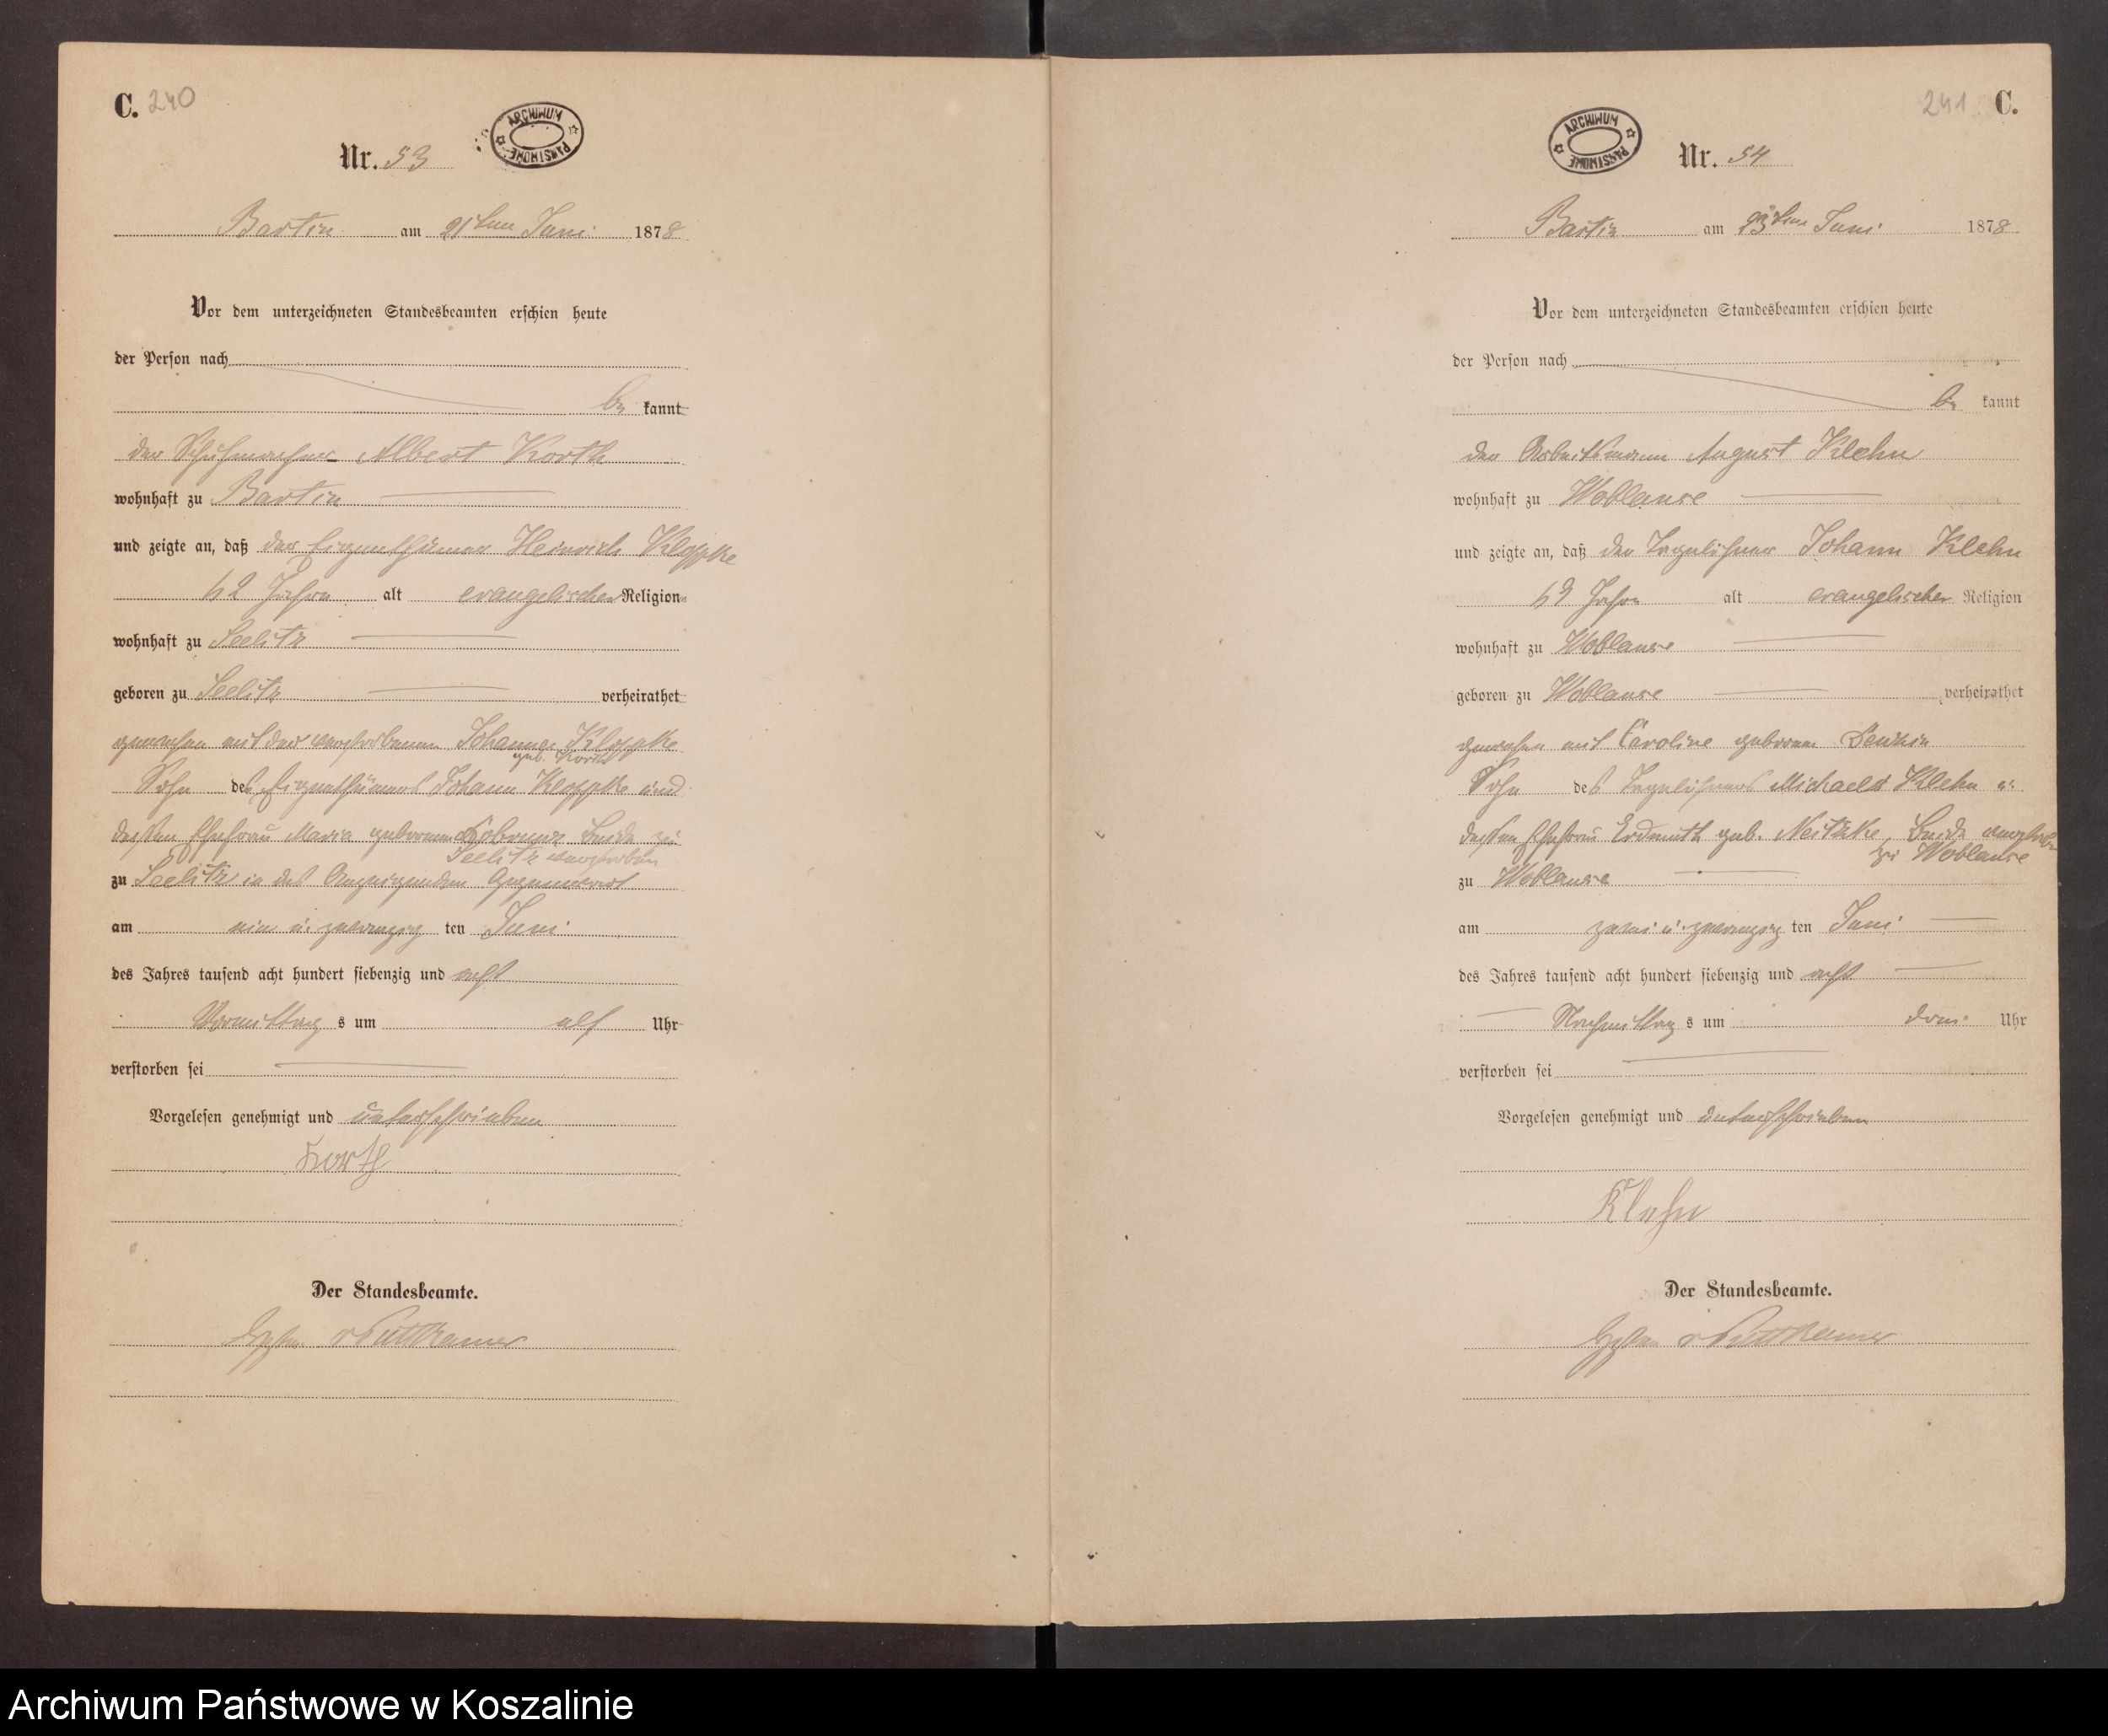 C. 240
ARCHIWUM PAŃSTWOWE
Nr. 53
Bartin am 21ten Juni 1878
Vor dem unterzeichneten Standesbeamten erschien heute
der Person nach
be kannt
der Schuhmacher Albert Korth
wohnhaft zu Bartin
und zeigte an, daß der Eigenthümer Heinrich Kloppke
62 Jahre alt evangelischer Religion
wohnhaft zu Seelitz
geboren zu Seelitz verheirathet
gewesen mit der verstorbenen Johanna Kloppke
geb. Korth
Sohn des Eigenthümers Johann Kloppke und
dessen Ehefrau Maria geborenen beide zu
Seelitz verstorben
zu Seelitz in des Anzeigenden Gegenwart
am ein u. zwanzig ten Juni
des Jahres tausend acht hundert siebenzig und acht
Vormittag s um elf Uhr
verstorben sei
Vorgelesen genehmigt und unterschrieben
Korth
Der Standesbeamte.
v Puttkamer
241 C.
ARCHIWUM PAŃSTWOWE
Nr. 54
Bartin am 23ten Juni 1878
Vor dem unterzeichneten Standesbeamten erschien heute
der Person nach
be kannt
der Arbeitsmann August Klehn
wohnhaft zu Woblanse
und zeigte an, daß der Tagelöhner Johann Klehn
63 Jahre alt evangelischer Religion
wohnhaft zu Woblanse
geboren zu Woblanse verheirathet
gewesen mit Caroline geborene
Sohn des Tagelöhners Michael Klehn u.
dessen Ehefrau Erdmuth geb. Neitzke, beide verstorben
zu Woblanse
zu Woblanse
am zwei u. zwanzig ten Juni
des Jahres tausend acht hundert siebenzig und acht
Nachmittag s um drei Uhr
verstorben sei
Vorgelesen genehmigt und unterschrieben
Klehn
Der Standesbeamte.
v Puttkamer
Archiwum Państwowe w Koszalinie